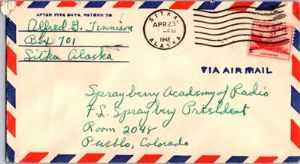 AFTER FIVE DAYS, RETURN TO
Alfred G. Tennison
Box 701
Sitka Alaska
SITKA
APR 23
PM
1948
ALASKA
VIA AIR MAIL
Sprayberry Academy of Radio
F.L. Sprayberry President
Room 2048
Pueblo, Colorado